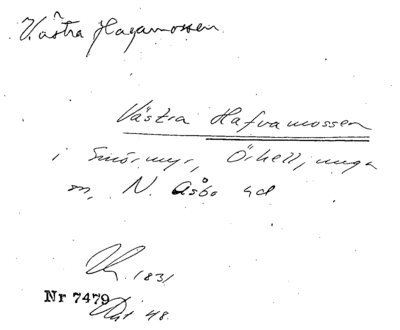 Västra Hagamossen
Västra Hafvamossen
i Smörmyr, Örkelljunga
sn, N. Åsbo hd
1831
Nr 7479
Akt 48.